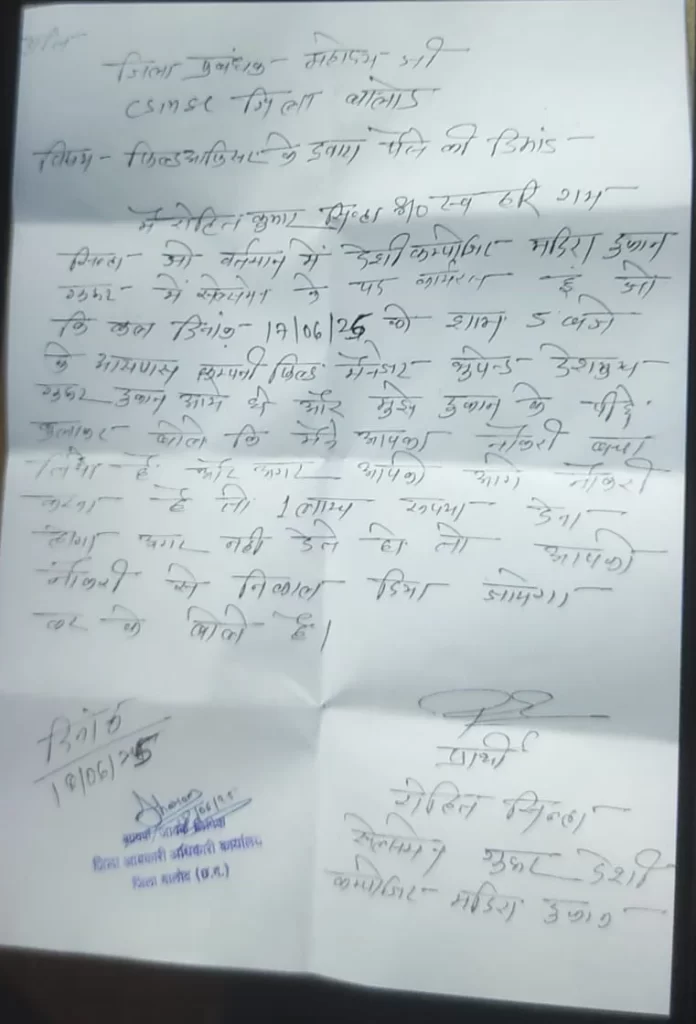 प्रति
जिला प्रबंधक महोदय जी
CSMSC जिला बालोद
विषय - फिल्डआफिसर के द्वारा पैसे की डिमांड -
मैं रोहित कुमार सिन्हा S/o स्व हरि राम
सिन्हा जो वर्तमान में देशी कम्पोजिट मदिरा दुकान
गुरुर में सेल्समेन के पद कार्यरत हूं जो
कि कल दिनांक 17/06/25 को शाम 5 बजे
के आसपास कम्पनी फिल्ड मैनेजर भुपेन्द्र देशमुख
गुरुर दुकान आये थे और मुझे दुकान के पीछे
बुलाकर बोले कि मैंने आपका नौकरी बचा
लिया है और अगर आपको आगे नौकरी
करना है तो 1 लाख रूपया देना
होगा अगर नहीं देते हो तो आपको
नौकरी से निकाल दिया जायेगा
कर के बोले है।
दिनांक
18/06/25
प्रार्थी
रोहित सिन्हा
सेल्समेन गुरुर देशी
कम्पोजिट मदिरा दुकान
जिला आबकारी अधिकारी कार्यालय
जिला बालोद (छ.ग.)